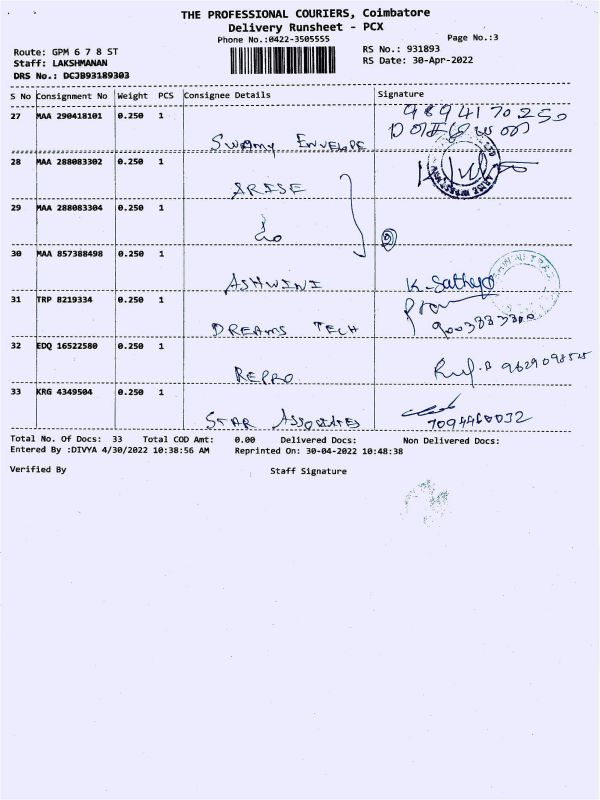 THE PROFESSIONAL COURIERS, Coimbatore
Delivery Runsheet - PCX
Phone No.:0422-3505555
Page No.:3
Route: GPM 6 7 8 ST
RS No.: 931893
Staff: LAKSHMANAN
RS Date: 30-Apr-2022
DRS No.: DCJB93189303
S No Consignment No Weight PCS Consignee Details Signature
27 MAA 290418101 0.250 1
9894170250
SWAMY ENVELOPE
28 MAA 288083302 0.250 1
ARISE
29 MAA 288083304 0.250 1
do
30 MAA 857388498 0.250 1
ASHWINI K. Sathya
31 TRP 8219334 0.250 1
DREAMS TECH
32 EDQ 16522580 0.250 1
REPRO
33 KRG 4349504 0.250 1
STAR ASSOCIATES 7094460032
Total No. Of Docs: 33 Total COD Amt: 0.00 Delivered Docs: Non Delivered Docs:
Entered By :DIVYA 4/30/2022 10:38:56 AM Reprinted On: 30-04-2022 10:48:38
Verified By Staff Signature